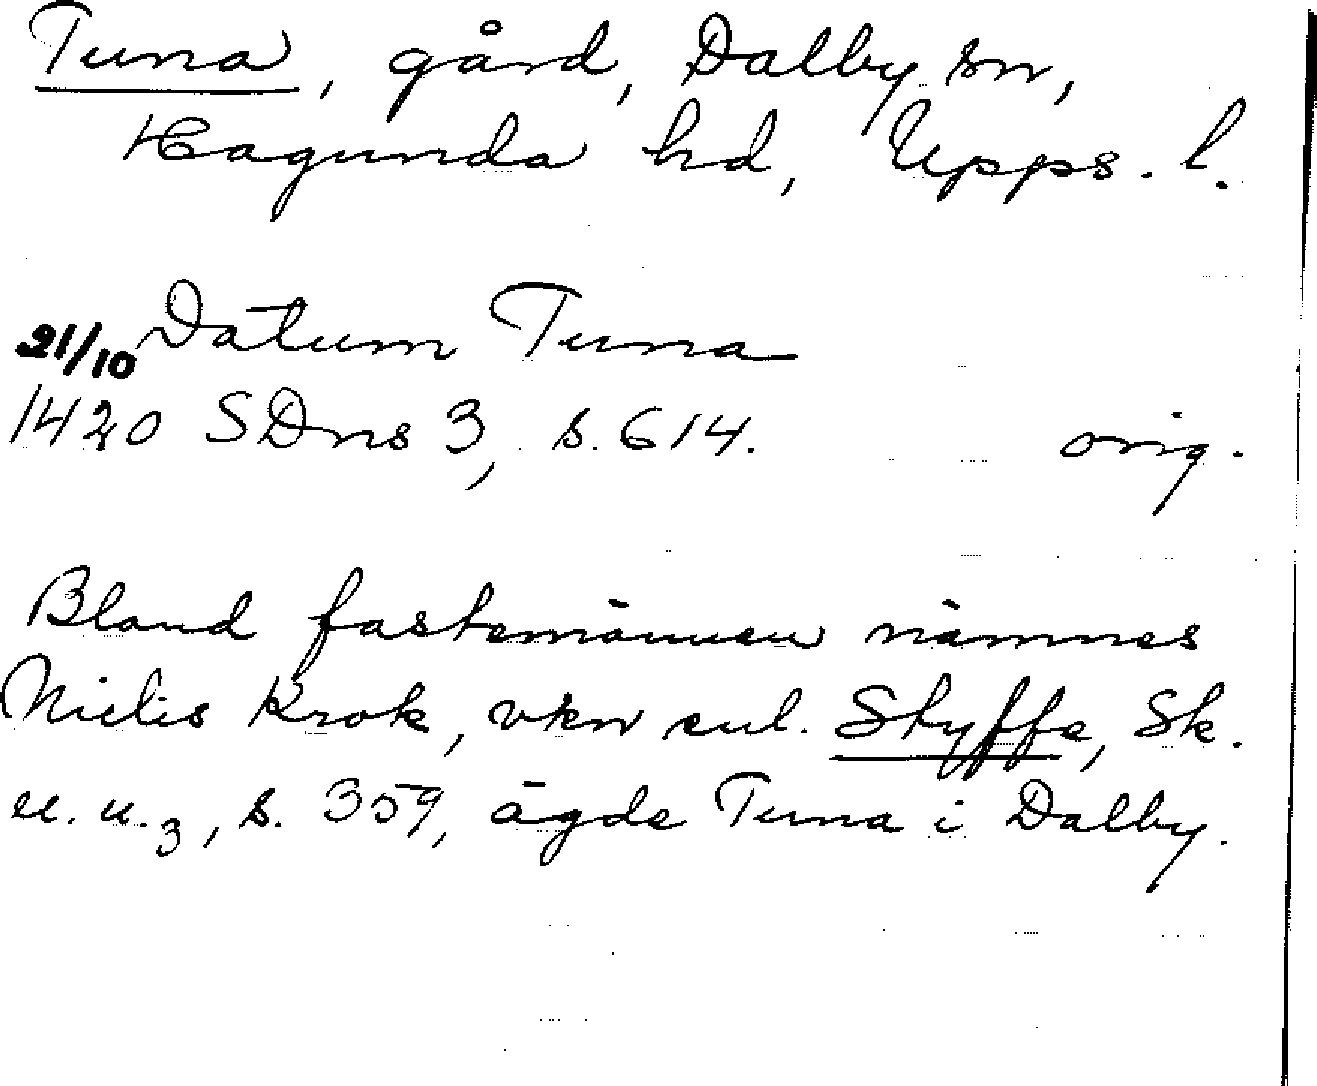 Tuna, gård, Dalby sn,
Hagunda hd, Upps. l.
21/10 Datum Tuna
1420 SDns 3, s. 614. orig.
Bland fastemännen nämnes
Nielis Krok, vkn enl. Styffe, Sk.
u. u. 3, s. 359, ägde Tuna i Dalby.